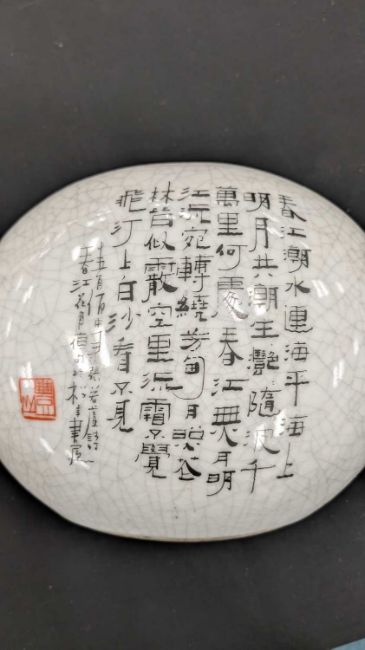 春江潮水連海平海上
明月共潮生灩隨波千
萬里何處春江無月明
江流宛轉繞芳甸月照花
林皆似霰空里流霜不覺
飛汀上白沙看不見
張若虛
春江花月